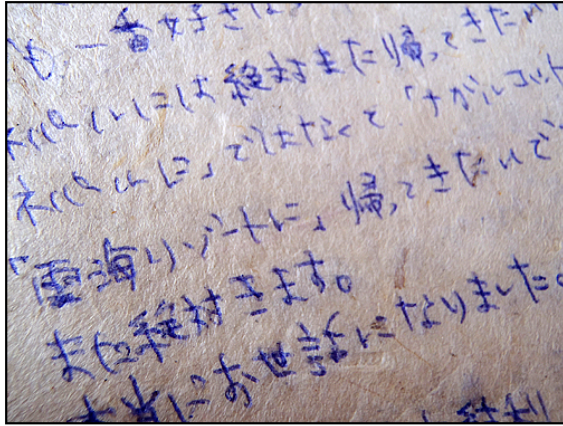 も一番好きな
ネパールには絶対また帰ってきたい
ネパールに」ではなくて「ナガルコット
「雲海リゾートに」帰ってきたいで
また絶対きます。
本当にお世話になりました。